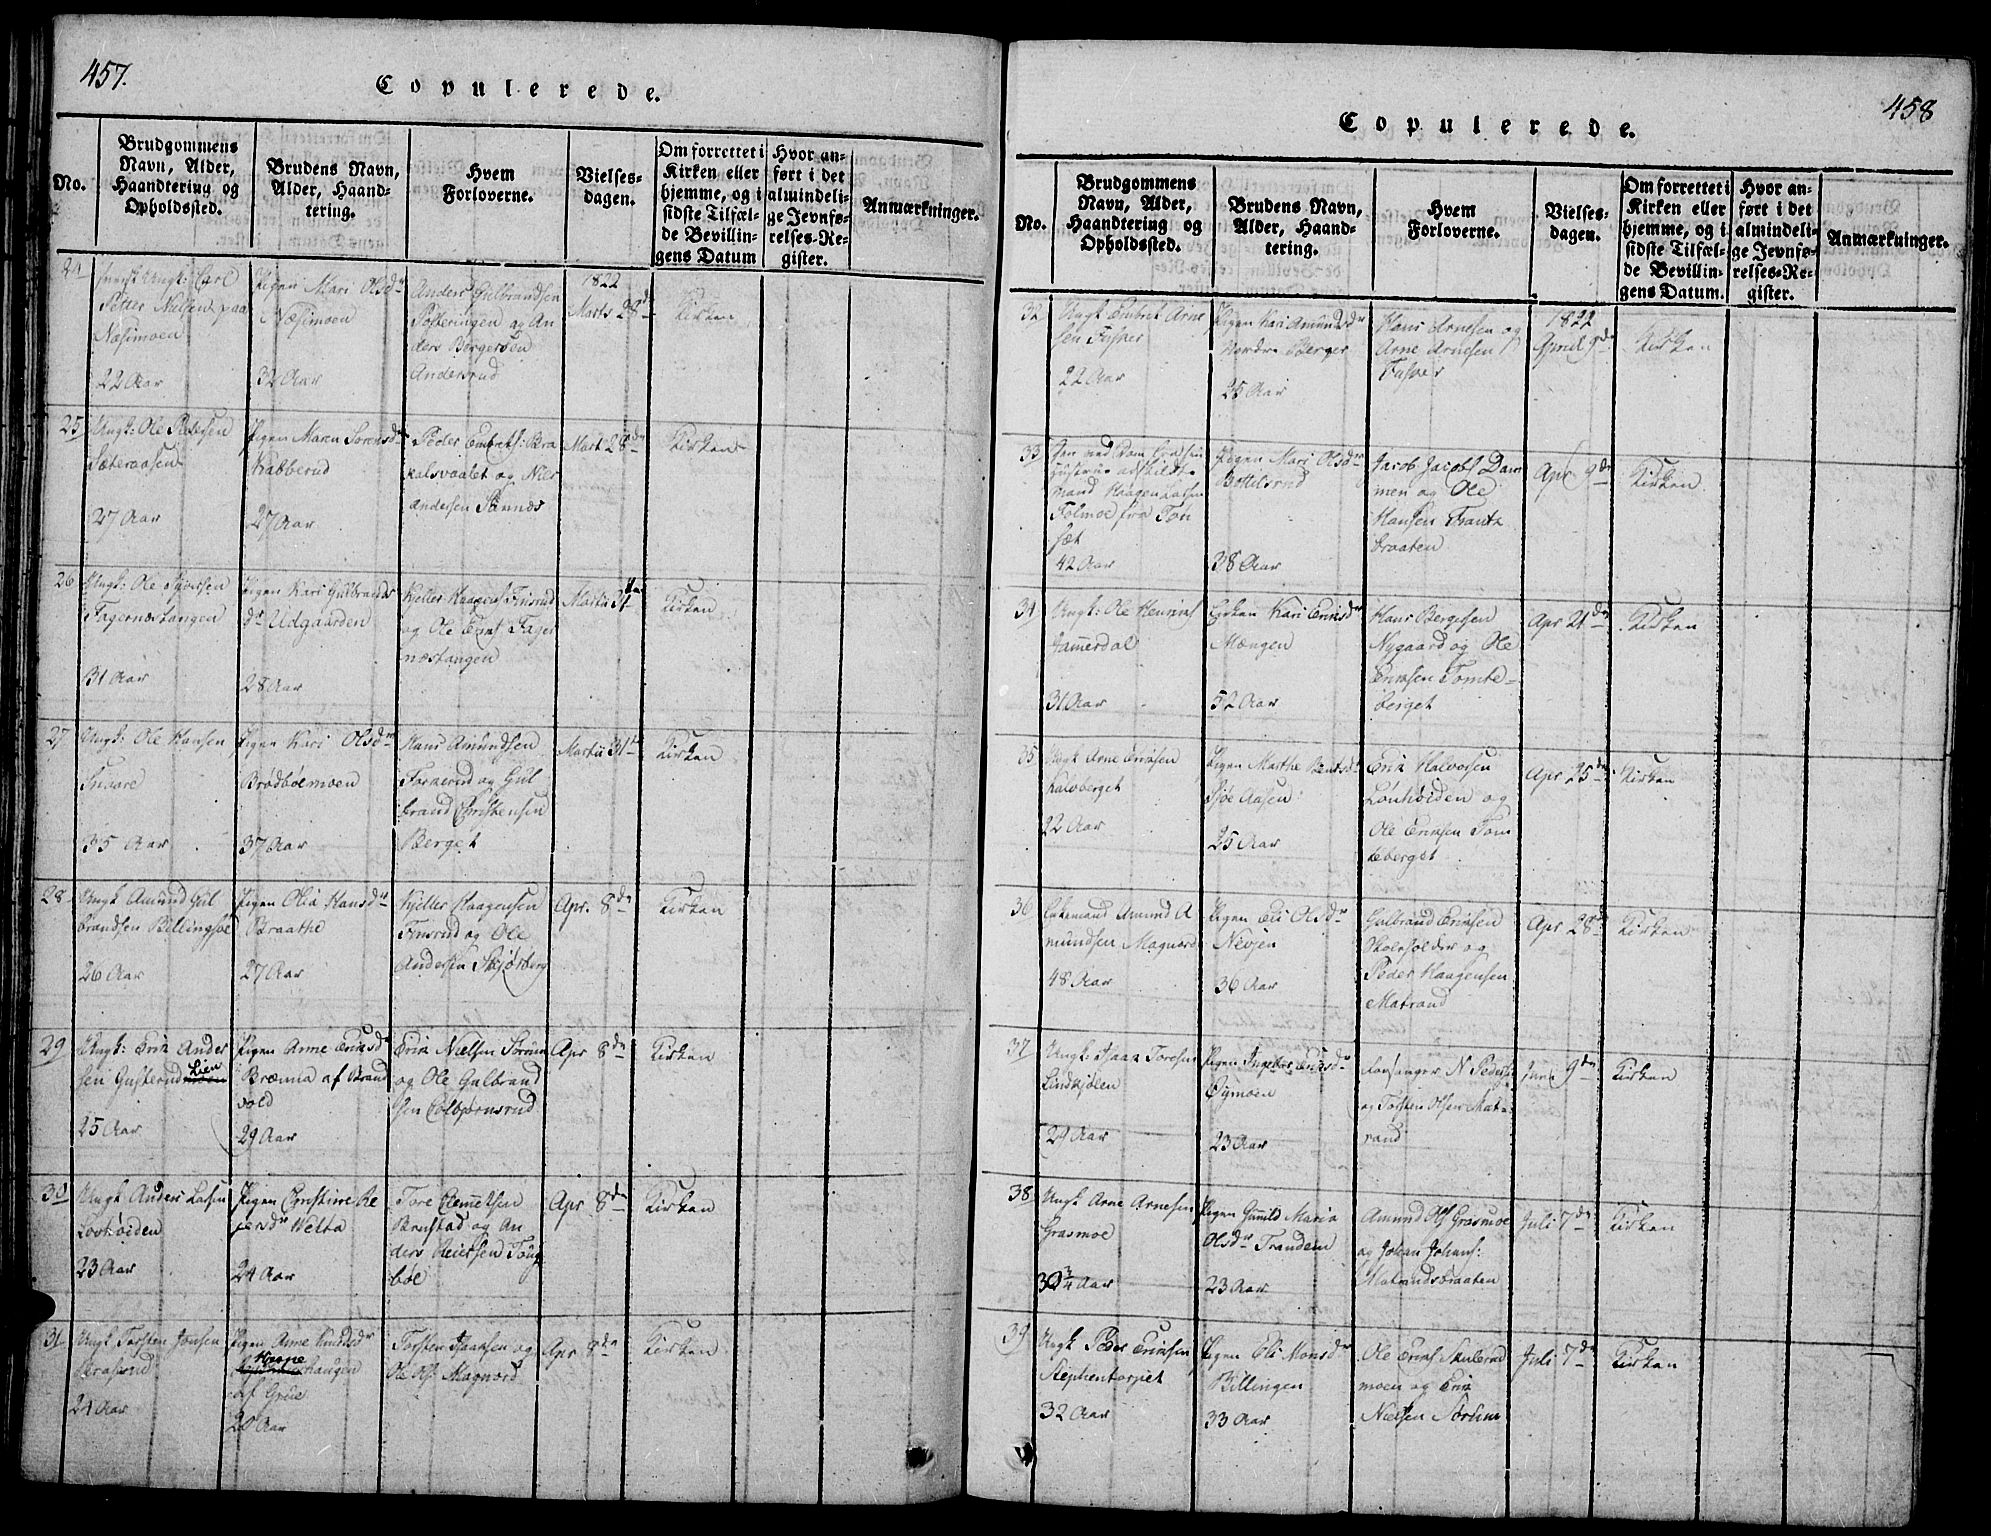 457.
Copulerede.
No.
Brudgommens Navn, Alder, Haandtering og Opholdssted.
Brudens Navn, Alder, Haandtering.
Hvem Forloverne.
Vielsesdagen.
Om forrettet i Kirken eller hjemme, og i sidste Tilfælde Bevillingens Datum
Hvor anført i det almindelige Jevnførelses-Register.
Anmærkninger.
24
Ungk: Carl
Petter Nielsen paa
Næsimoen
22 Aar
Pigen Mari Olsdr
Næsimoen
32 Aar
Anders Gulbrandsen
og An
ders Bergersen
Andersrud
1822
Marts 28d
Kirken
25
Ungk: Ole Pedersen
Sæteraasen
27 Aar
Pigen Maren Sørensdr
Kabberud
27 Aar
Peder Embrets: Bra
kalsvaalet og Niels
Andersen Sønnes
Mart 28de
Kirken
26
Ungk: Ole Syversen
Fagernæstangen
31 Aar
Pigen Kari Gulbrands
dr Udgaarden
28 Aar
Kjelder Haagens Finsrud
og Ole Fager
næstangen
Martii 31te
Kirken
27
Ungk: Ole Hansen
Snare
35 Aar
Pigen Kari Olsdr
Brødbøemoen
37 Aar
Hans Amundsen
og Gul
brand Christensen
Berget
Martii 31t
Kirken
28
Ungk Amund Gul
brandsen Billingsøe
26 Aar
Pigen Olia Hansdr
Braathe
27 Aar
Kjelder Haagensen
Finsrud og Ole
Andersen Skjørberg
Apr. 8de
Kirken
29
Ungk: Erik Ander
sen Gusterud Lien
25 Aar
Pigen Anne Eriksdr
Brænna af Brand
vold
29 Aar
Erik Nielsen Sørum
og Ole Gulbrand
sen Colbjørnsrud
Apr 8de
Kirken
30
Ungk Anders Larsen
Lovhøiden
23 Aar
Pigen Christine Re
jersdr Welta
24 Aar
Tore Clemetsen
og An
ders Reiersen Toug
bøe
Apr 8de
Kirken
31
Ungk Torsten Jonsen
24 Aar
Pigen Anne Knudsdr
haugen
af Grue
20 Aar
Torsten Isaksen og
Ole Ols: Magnord
Apr 8de
Kirken
458
Copulerede.
No.
Brudgommens Navn, Alder, Haandtering og Opholdssted.
Brudens Navn, Alder, Haandtering.
Hvem Forloverne.
Vielsesdagen.
Om forrettet i Kirken eller hjemme, og i sidste Tilfælde Bevillingens Datum.
Hvor anført i det almindelige Jevnførelses-Register.
Anmærkninger.
32
Ungk Embret Arne
sen Fasker
22 Aar
Pigen Kari Amundsdr
Nordre Berger
25 Aar
Hans Arnesen og
Arne Arnesen
Fasker
1822
April 9de
Kirken
33
Den ved Dom fra sin
Hustrue adskildte
mand Haagen Larsen
Tolmoe fra Tøn
sæt
42 Aar
Pigen Mari Olsdr
Bottilsrud
38 Aar
Jacob Jacobs Dam
men og Ole
Hansen Frantz
braaten
Apr 9de
Kirken
34
Ungk: Ole Henriks
Jammerdal
31 Aar
Enken Kari Eriksdr
Mængen
52 Aar
Hans Bergersen
Nygaard og Ole
Eriksen Tomte-
berget
Apr 21de
Kirken
35
Ungk Arne Eriksen
Kalvberget
22 Aar
Pigen Marthe Berntsdr
Sjøe Aasen
25 Aar
Erik Halvorsen
Lønhøiden og
Ole Eriksen Tom
teberget
Apr 25de
Kirken
36
Enkemand Amund A
mundsen Magnord
48 Aar
Pigen Eli Olsdr
Nevjen
36 Aar
Gulbrand Eriksen
Skoleholder og
Peder Haagensen
Matrand
Apr 28d
Kirken
37
Ungk: Isaac Toresen
Lindkjølen
24 Aar
Pigen Ingebor Eriksdr
Øymoen
23 Aar
Forsanger N Peders:
og Torsten Olsen Mat
rand
Juni 9de
Kirken
38
Ungk Arne Arnesen
Grasmoe
30 3/4 Aar
Pigen Gunild Maria
Olsdr Trandem
23 Aar
Amund Ols Grasmoe
og Johan Johans:
Matrandsbraaten
Juli 7de
Kirken
39
Ungk Peder Eriksen
Stephentorpet
32 Aar
Pigen Eli Monsdr
Billingen
33 Aar
Ole Eriks Skulerud
moen og Erik
Nielsen Sørum
Juli 7de
Kirken